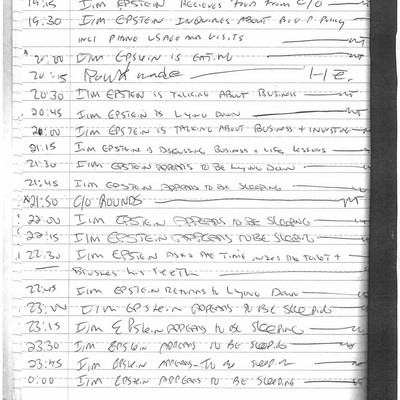 19:15 I/M EPSTEIN RECIEVES FROM C/O
19:30 I/M EPSTEIN INQUIRES ABOUT
INCL PHONE USAGE AND VISITS
20:00 I/M EPSTEIN IS EATING
20:15 Round made
20:30 I/M EPSTEIN IS TALKING ABOUT BUSINESS
20:45 I/M EPSTEIN IS LYING DOWN
21:00 I/M EPSTEIN IS TALKING ABOUT BUSINESS + INVESTING
21:15 I/M EPSTEIN IS DISCUSSING BUSINESS + LIFE LESSONS
21:30 I/M EPSTEIN APPEARS TO BE LYING DOWN
21:45 I/M EPSTEIN APPEARS TO BE SLEEPING
*21:50 C/O ROUNDS
22:00 I/M EPSTEIN APPEARS TO BE SLEEPING
22:15 I/M EPSTEIN APPEARS TO BE SLEEPING
22:30 I/M EPSTEIN ASKS THE TIME USES THE TOILET +
BRUSHES HIS TEETH
22:45 I/M EPSTEIN RETURNS TO LYING DOWN
23:00 I/M EPSTEIN APPEARS TO BE SLEEPING
23:15 I/M EPSTEIN APPEARS TO BE SLEEPING
23:30 I/M EPSTEIN APPEARS TO BE SLEEPING
23:45 I/M EPSTEIN APPEARS TO BE SLEEPING
0:00 I/M EPSTEIN APPEARS TO BE SLEEPING